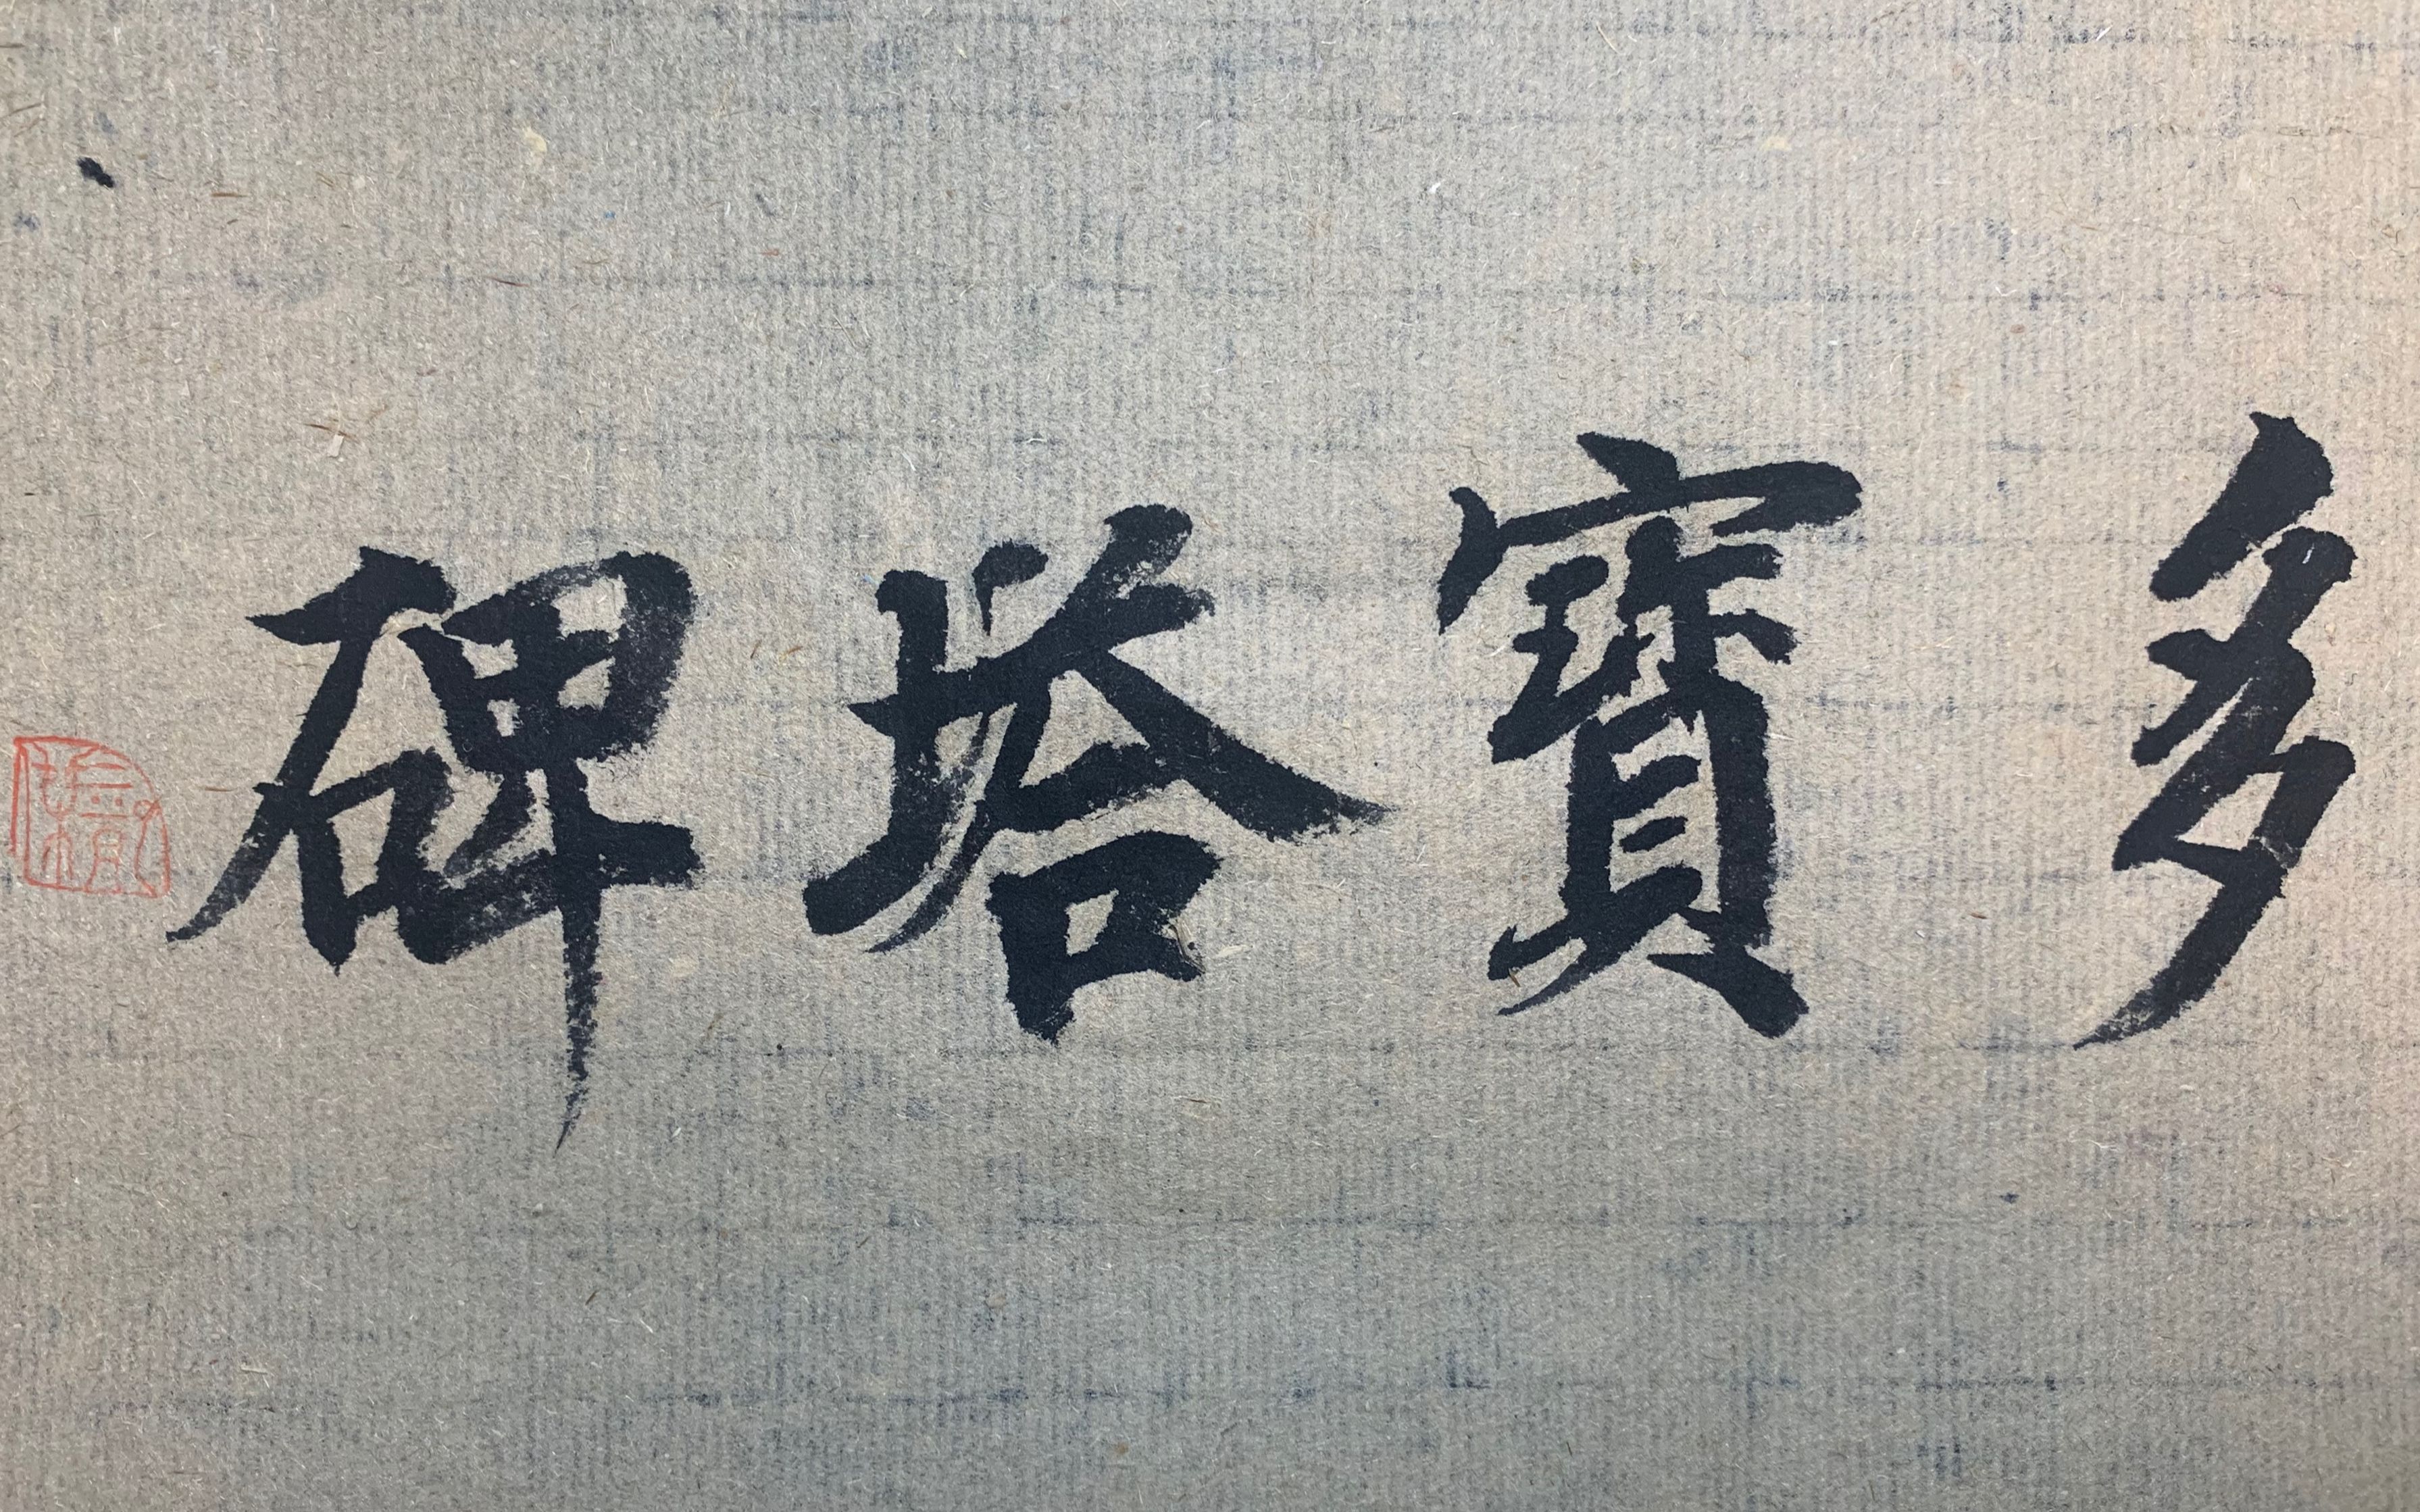 多寶塔碑